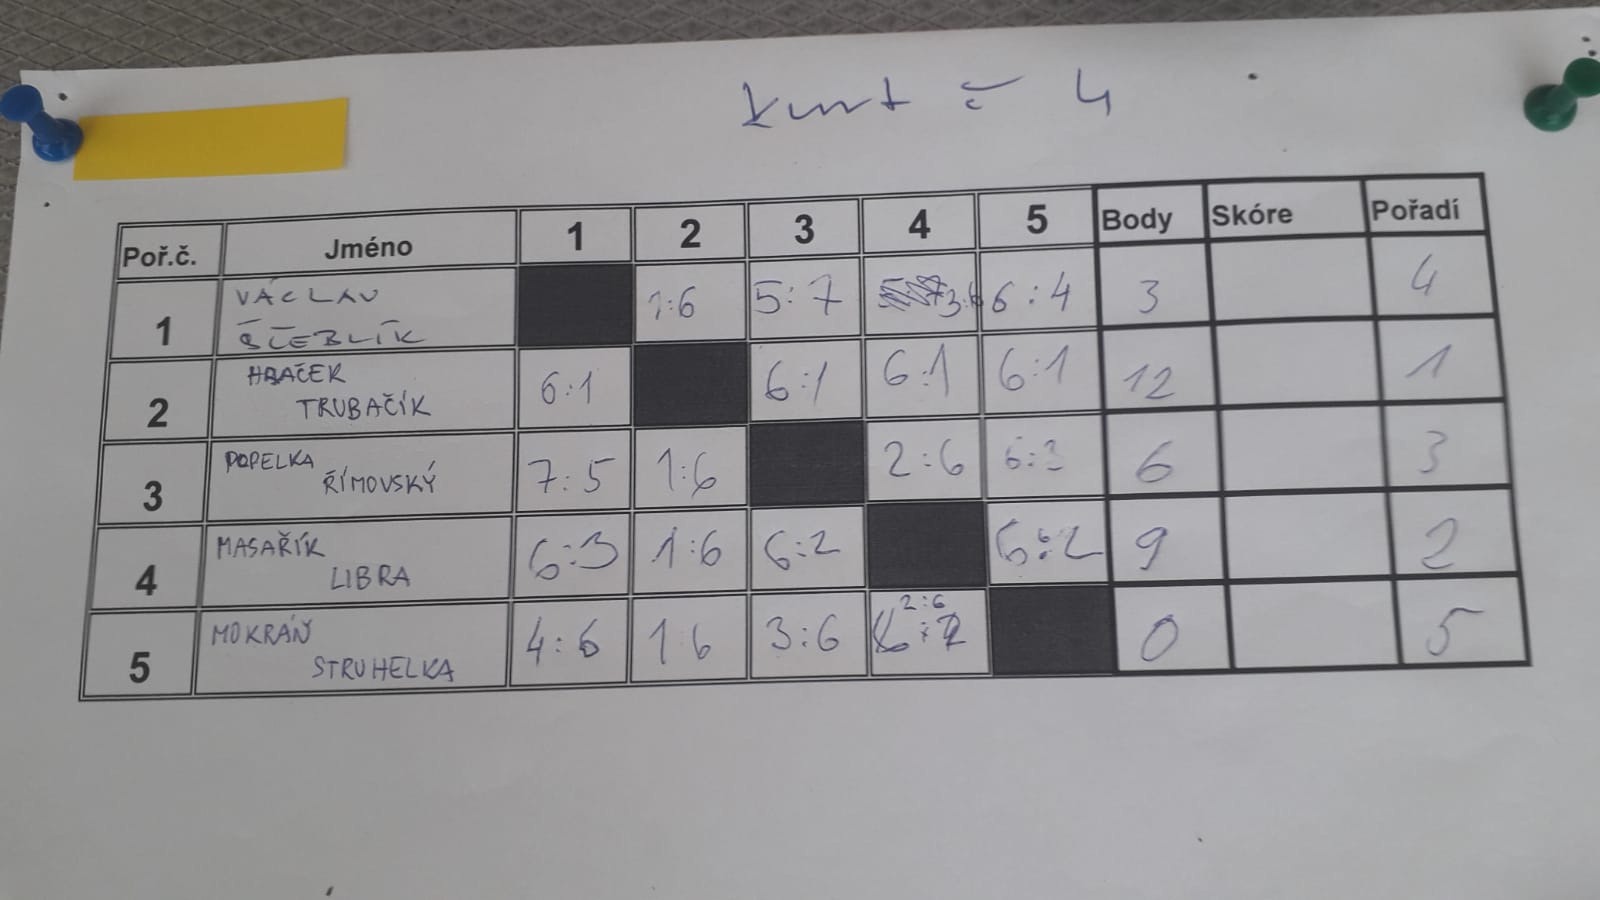 kurt č 4
Poř.č. Jméno 1 2 3 4 5 Body Skóre Pořadí
1 VÁCLAV ŠTĚBLÍK 1:6 5:7 3:6 6:4 3 4
2 HRAČEK TRUBAČÍK 6:1 6:1 6:1 6:1 12 1
3 POPELKA ŘÍMOVSKÝ 7:5 1:6 2:6 6:3 6 3
4 MASAŘÍK LIBRA 6:3 1:6 6:2 6:2 9 2
5 MOKRÁŇ STRUHELKA 4:6 1:6 3:6 2:6 0 5